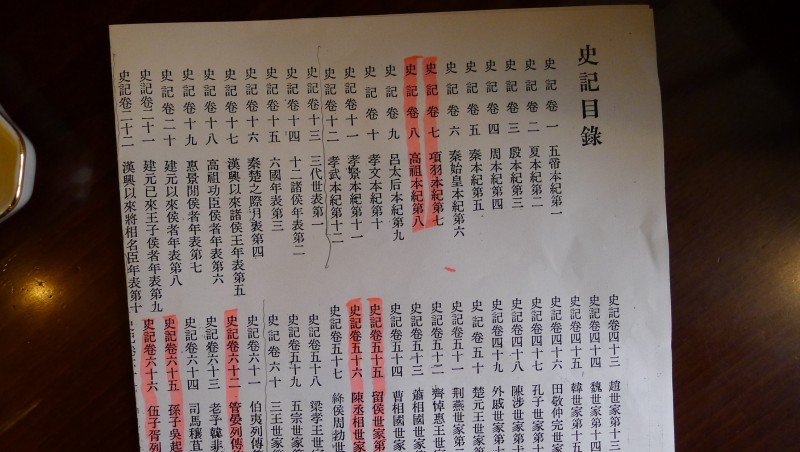 史記目錄
史記卷一 五帝本紀第一
史記卷二 夏本紀第二
史記卷三 殷本紀第三
史記卷四 周本紀第四
史記卷五 秦本紀第五
史記卷六 秦始皇本紀第六
史記卷七 項羽本紀第七
史記卷八 高祖本紀第八
史記卷九 呂太后本紀第九
史記卷十 孝文本紀第十
史記卷十一 孝景本紀第十一
史記卷十二 孝武本紀第十二
史記卷十三 三代世表第一
史記卷十四 十二諸侯年表第二
史記卷十五 六國年表第三
史記卷十六 秦楚之際月表第四
史記卷十七 漢興以來諸侯王年表第五
史記卷十八 高祖功臣侯者年表第六
史記卷十九 惠景閒侯者年表第七
史記卷二十 建元以來侯者年表第八
史記卷二十一 建元已來王子侯者年表第九
史記卷二十二 漢興以來將相名臣年表第十
史記卷四十三 趙世家第十三
史記卷四十四 魏世家第十四
史記卷四十五 韓世家第十五
史記卷四十六 田敬仲完世家
史記卷四十七 孔子世家第
史記卷四十八 陳涉世家第
史記卷四十九 外戚世家第
史記卷五十 楚元王世家
史記卷五十一 荊燕世家第二
史記卷五十二 齊悼惠王世家
史記卷五十三 蕭相國世家
史記卷五十四 曹相國世家
史記卷五十五 留侯世家第
史記卷五十六 陳丞相世家
史記卷五十七 絳侯周勃世
史記卷五十八 梁孝王世家
史記卷五十九 五宗世家第
史記卷六十 三王世家第
史記卷六十一 伯夷列傳第
史記卷六十二 管晏列傳
史記卷六十三 老子韓非
史記卷六十四 司馬穰苴
史記卷六十五 孫子吳起
史記卷六十六 伍子胥列